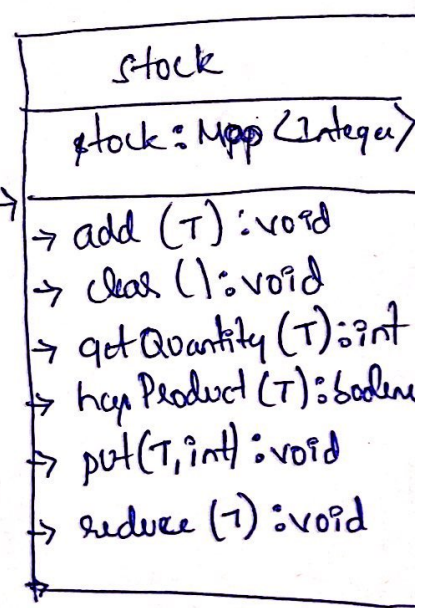 stock
stock : Map <Integer>
→ add (T) : void
→ clear () : void
→ getQuantity (T) : int
→ hasProduct (T) : boolean
→ put (T, int) : void
→ reduce (T) : void